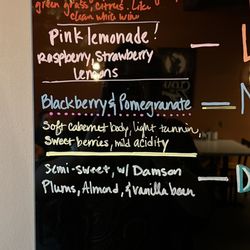 green grass, citrus. Like
clean white wine
Pink lemonade!
Raspberry, Strawberry
Lemons
Blackberry & Pomegranate
Soft cabernet body, light tannin,
Sweet berries, mild acidity
Semi-sweet, w/ Damson
Plums, Almond, & vanilla bean